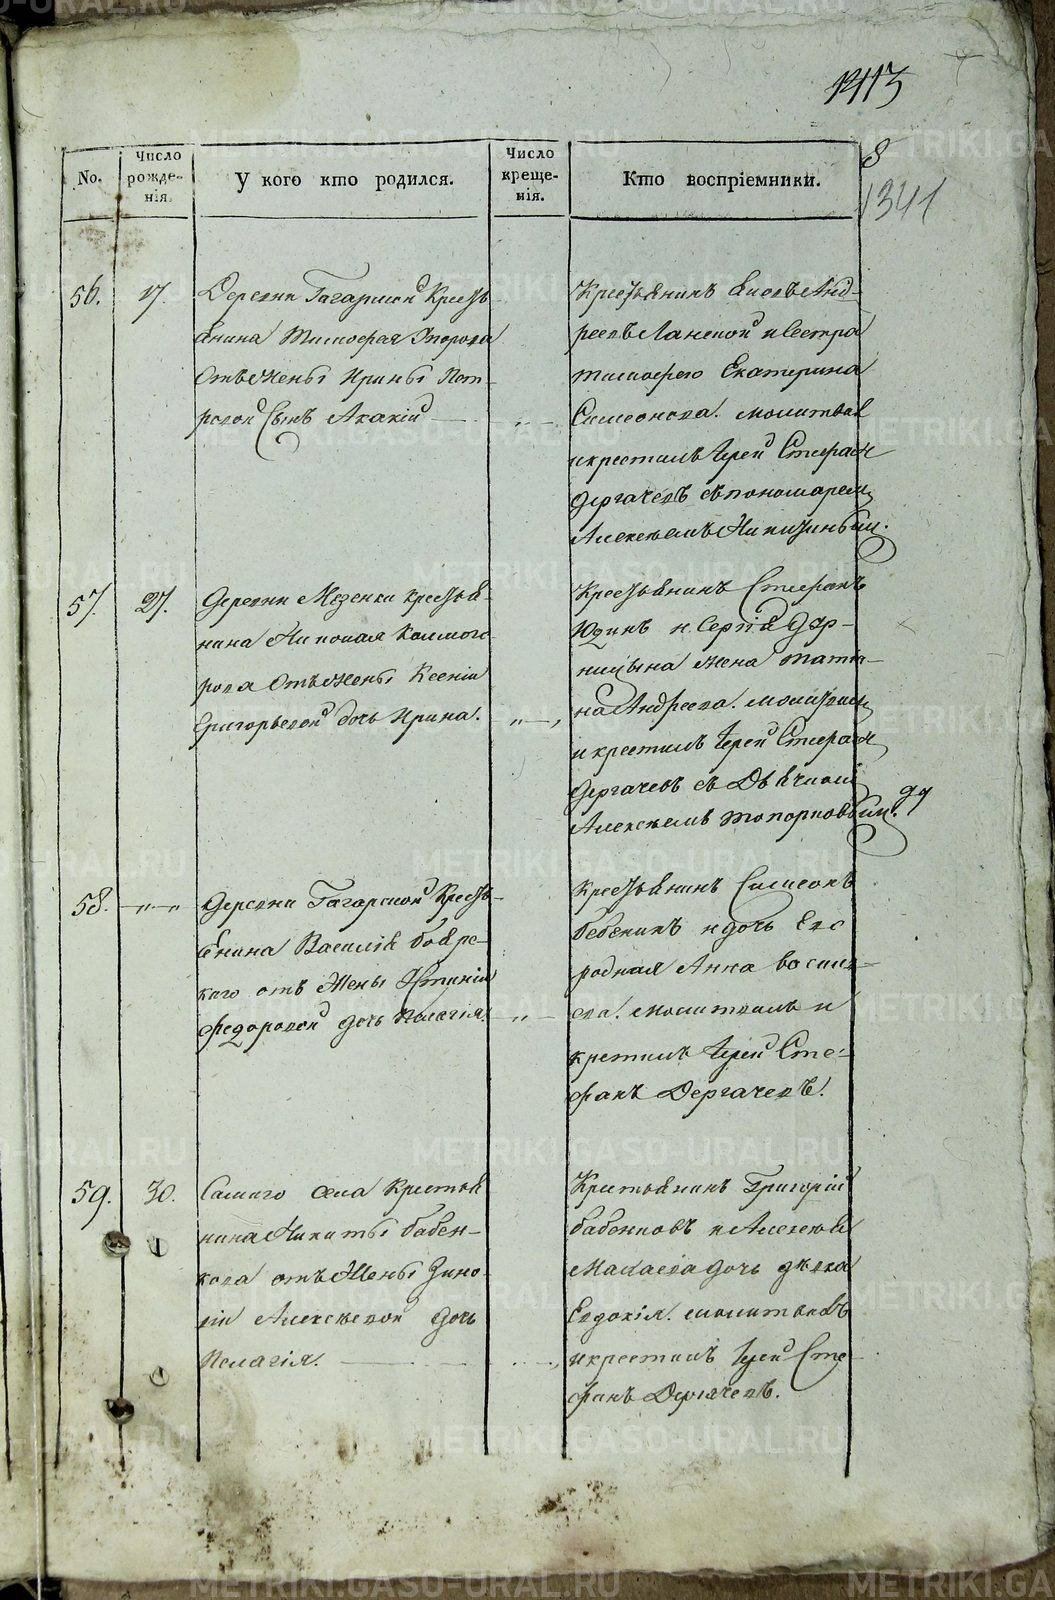 1413
8
1341
No.
Число рожде-нія.
У кого кто родился.
Число креще-нія.
Кто воспріемники.
56.
Деревни Гагарской Крестья
янина Тимофея
Отъ Жены Ирины Пет-
ровой Сынъ Акакій
Крестьянинъ Андр-
реевъ Ланской и Сестра
Тимофею Екатерина
Симеонова. молитвов
и крестилъ Іерей Стефан
Дергачевъ съ пономарем
Алексѣемъ
57.
27.
Деревни Мезенки Крестья-
нина Николая Колмого
рова Отъ Жены Ксеніи
Григорьевой дочь Ирина.
Крестьянинъ Стефанъ
Юдинъ и Сергія
жена Татья-
на Андреева. молитвил
и крестилъ Іерей Стефан
Дергачевъ съ Дьячкомъ
Алексѣемъ Топорковым.
58.
Деревни Гагарской Крестья-
янина Василія Боярс-
каго отъ Жены Устиніи
Федоровой дочь Пелагія.
Крестьянинъ Симеонъ
Бабенинъ и дочь Его
родная Анна Василь-
ева. молитвилъ и
кретилъ Іерей Сте-
фанъ Дергачевъ.
59.
30.
Самаго села Крестья
нина Никиты Бабен-
кова отъ Жены Зино-
віи Алексѣевой дочь
Пелагія.
Крестьянинъ Григорій
Бабенковъ и Алексѣя
Макаева дочь дѣвка
Евдокія. молитвовъ
и крестилъ Іерей Сте-
фанъ Дергачевъ.
METRIKI.GASO-URAL.RU